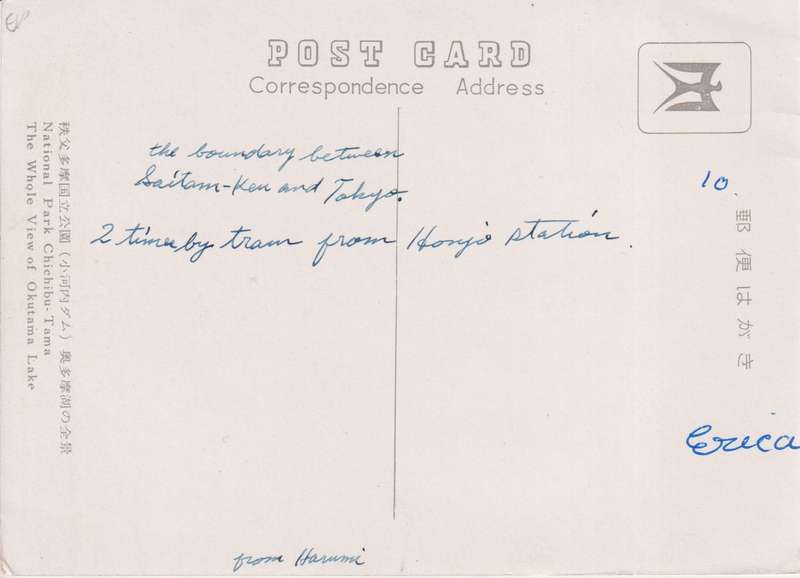 POST CARD
Correspondence Address
秩父多摩国立公園(小河内ダム)奥多摩湖の全景
National Park Chichibu-Tama
The Whole View of Okutama Lake
the boundary between
Saitam-Ken and Tokyo.
2 times by train from Honjo station.
10
郵便はがき
Erica
from Harumi